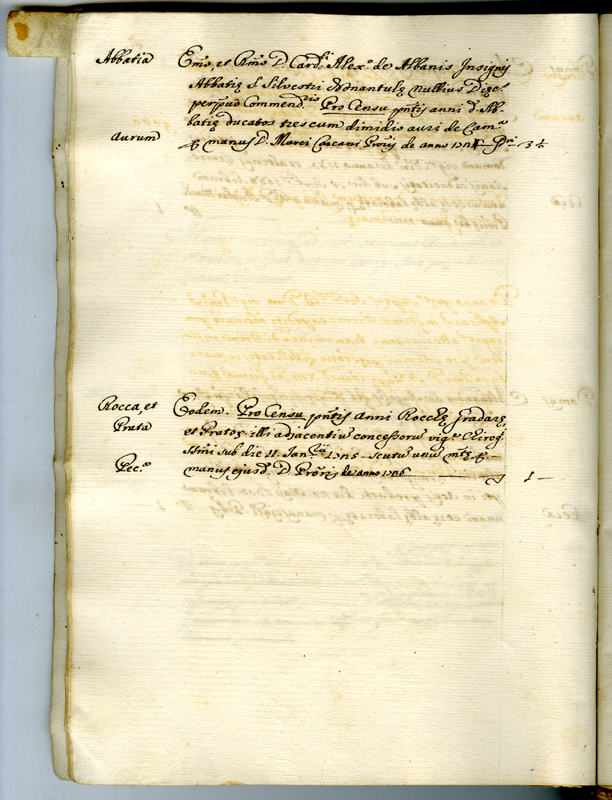 Abbatia Emo, et Rmo D. Card. Alexo de Albanis Insignis
Abbatię S. Silvestri Nonantulę Nullius Dięc.
perpetuo Commend.rio Pro Censu pntis anni d. Ab-
batię ducatos tres cum dimidio auri de Cam.a
Aurum manus D. Marci Cascani Proris de anno 3 ½
Rocca, et Eodem. Pro Censu pntis Anni Rocchę Gradarę,
Prata et Pratoȝ illi adjacentiu concessoru vig.e Chirog.
SSmi sub die 11. Jan.rii 1725 scutu unu mtę
Pec.a manus ejusd. D Proris de anno 1726 1 —